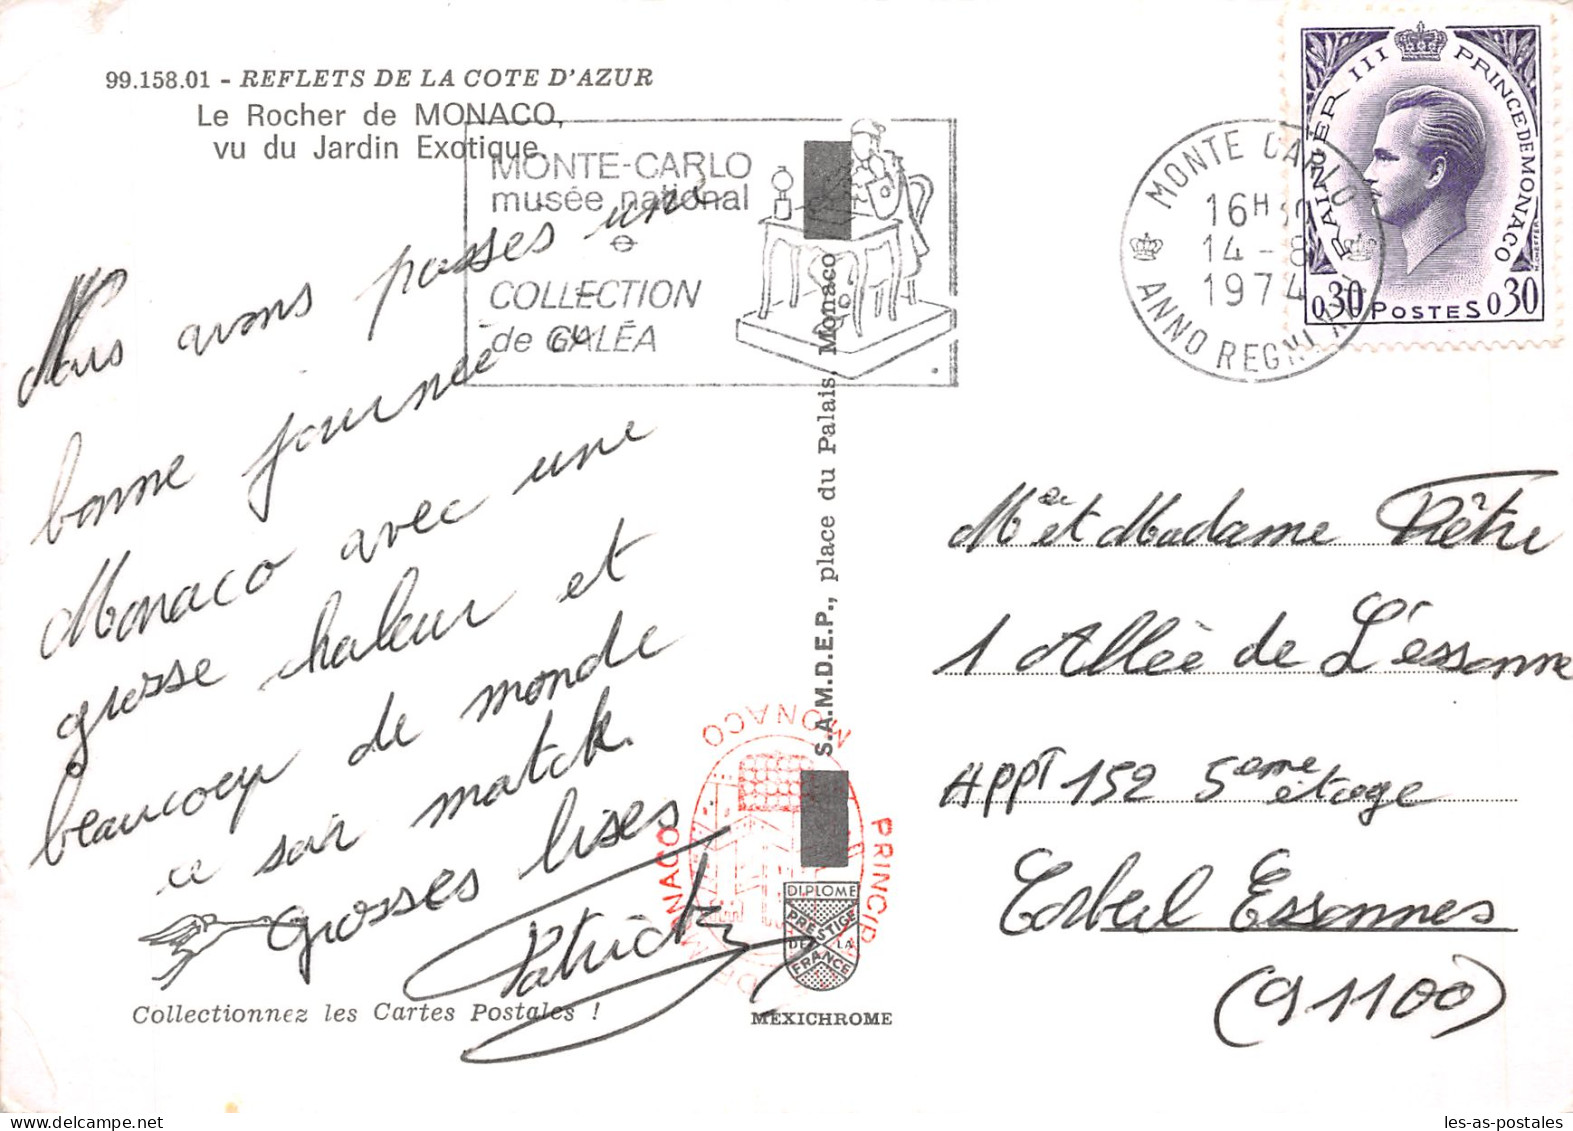 99.158.01 - REFLETS DE LA COTE D'AZUR
Le Rocher de MONACO,
vu du Jardin Exotique.
MONTE-CARLO
musée national
COLLECTION
de GALÉA
MONTE CARLO
16H
14 - 8
1974
ANNO REGNI
RAINIER III PRINCE DE MONACO
0,30 POSTES 0,30
Nous avons passés une
bonne journée a
Monaco avec une
grosse chaleur et
beaucoup de monde
ce soir match.
grosses bises
Patrick
Mr et Madame Piêtre
1 Allée de L'éssonne
APPT 152 5eme étage
Corbeil Essonnes
(91100)
S.A.M.D.E.P., place du Palais, Monaco
MONACO
PRINCIP
MONACO
DIPLOME
PRESTIGE
DE LA
FRANCE
Collectionnez les Cartes Postales !
MEXICHROME
les-as-postales